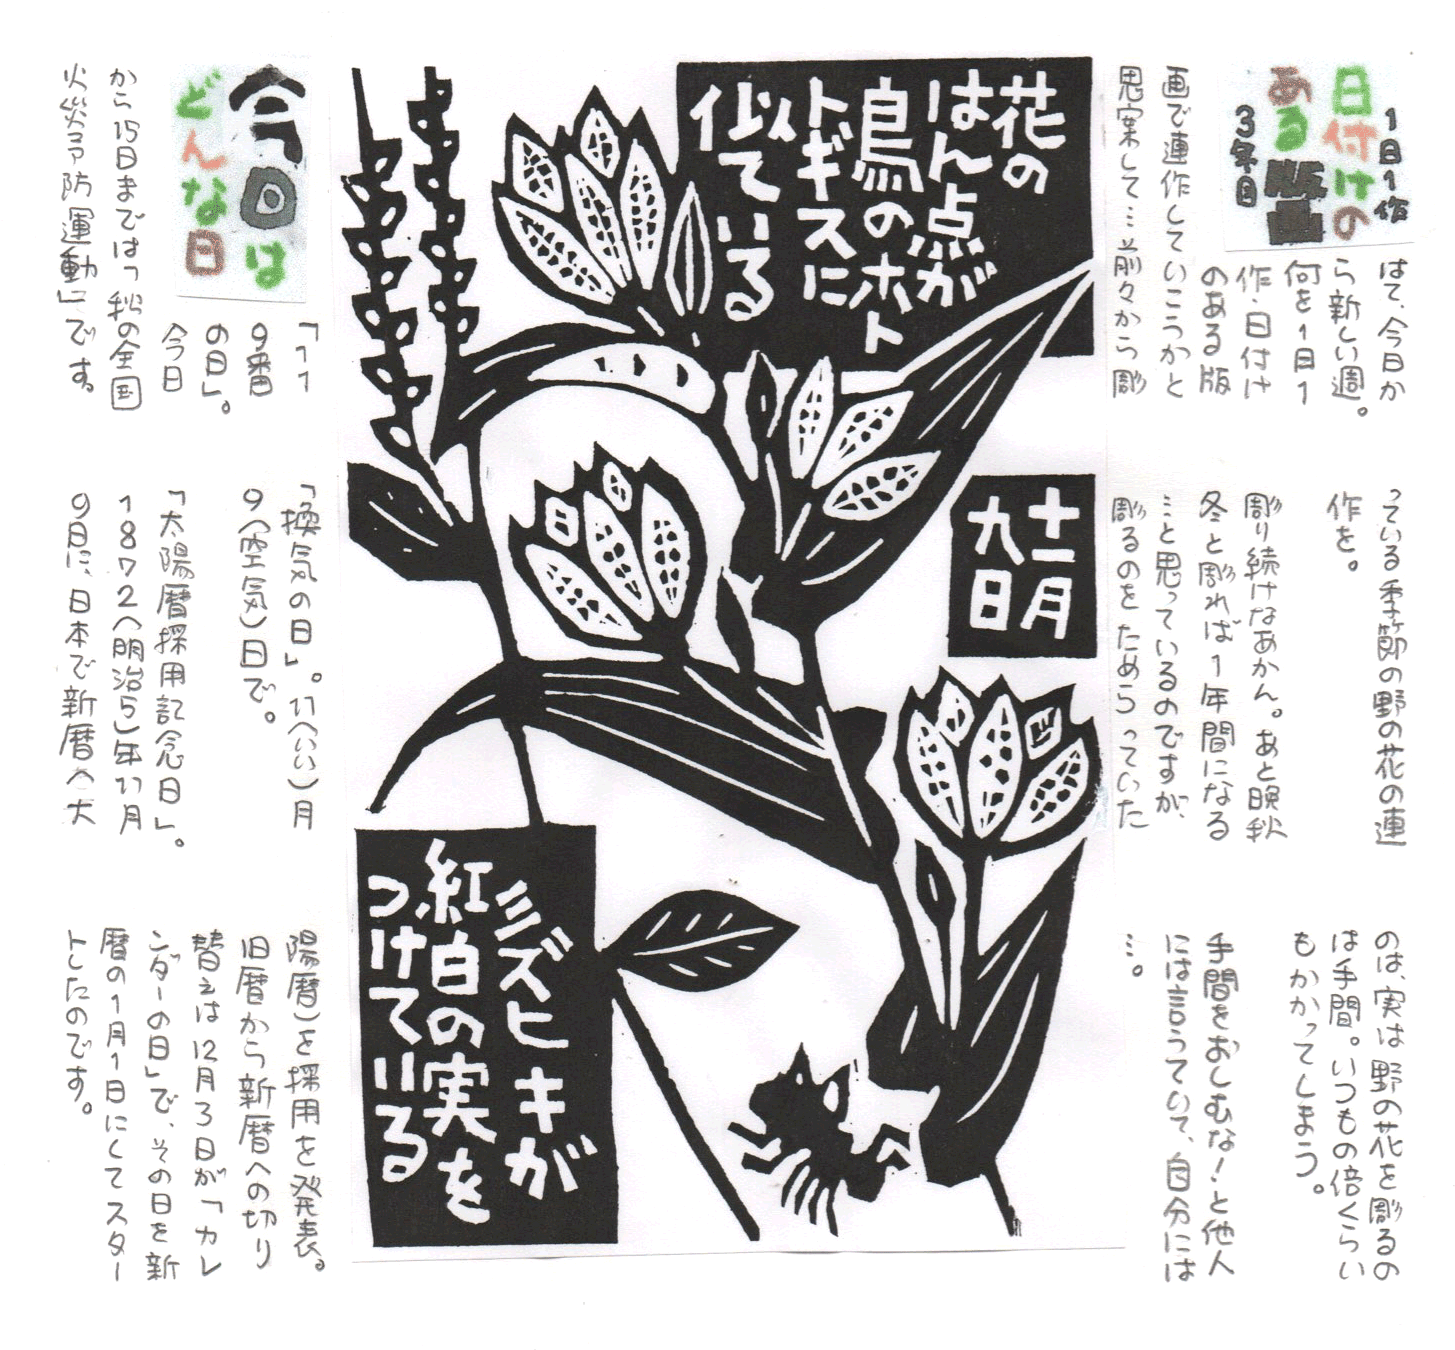 1日1作
日付けの
ある版画
3年目
はて、今日か
ら新しい週。
何を1日1
作・日付け
のある版
画で連作していこうかと
思案して…前々から彫
っている季節の野の花の連
作を。
彫り続けなあかん。あと晩秋
冬と彫れば1年間になる
…と思っているのですが、
彫るのをためらっていた
のは、実は野の花を彫るの
は手間。いつもの倍くらい
もかかってしまう。
手間をおしむな!と他人
には言っていて、自分には
…。
花の
はん点が
鳥のホト
トギスに
似ている
十一月
九日
ミズヒキが
紅白の実を
つけている
今日は
どんな日
「11
9番
の日」。
今日
から15日までは「秋の全国
火災予防運動」です。
「換気の日」。11(いい)月
9(空気)日で。
「太陽暦採用記念日」。
1872(明治5)年11月
9月に、日本で新暦(太
陽暦)を採用を発表。
旧暦から新暦への切り
替えは12月3日が「カレ
ンダーの日」で、その日を新
暦の1月1日にしてスター
トしたのです。